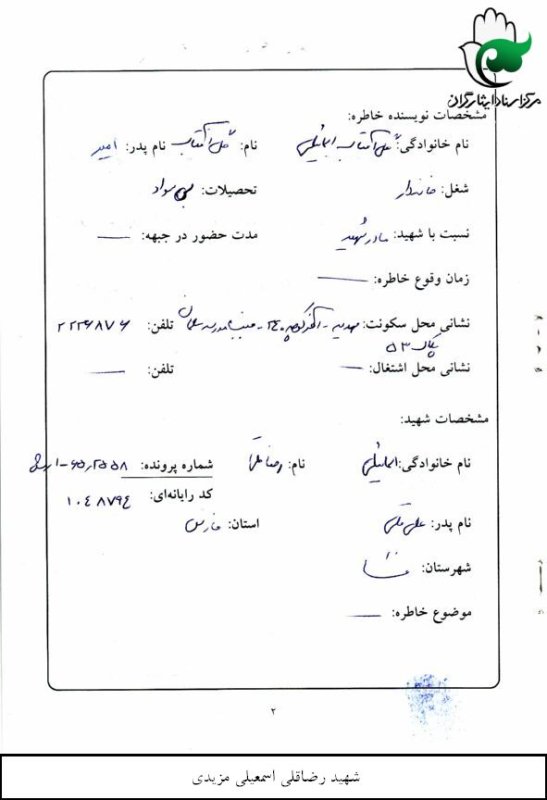 مرکز اسناد ایثارگران
مشخصات نویسنده خاطره:
نام خانوادگی: گل آفتاب اسماعیلی نام: گل آفتاب نام پدر: امیر
شغل: خانه‌دار تحصیلات: بی سواد
نسبت با شهید: مادر شهید مدت حضور در جبهه: ــــ
زمان وقوع خاطره: ــــ
نشانی محل سکونت: مهدیه - آخر کوچه ۲۴۰ - جنب مدرسه تلفن: ۲۲۲۶۸۷۶
پلاک ۵۳
نشانی محل اشتغال: ــــ تلفن: ــــ
مشخصات شهید:
نام خانوادگی: اسماعیلی نام: رضاقلی شماره پرونده:
کد رایانه‌ای: ۱۰۴۸۷۹۴
نام پدر: علی قلی استان: فارس
شهرستان: فسا
موضوع خاطره: ــــ
۲
شهید رضاقلی اسمعیلی مزیدی